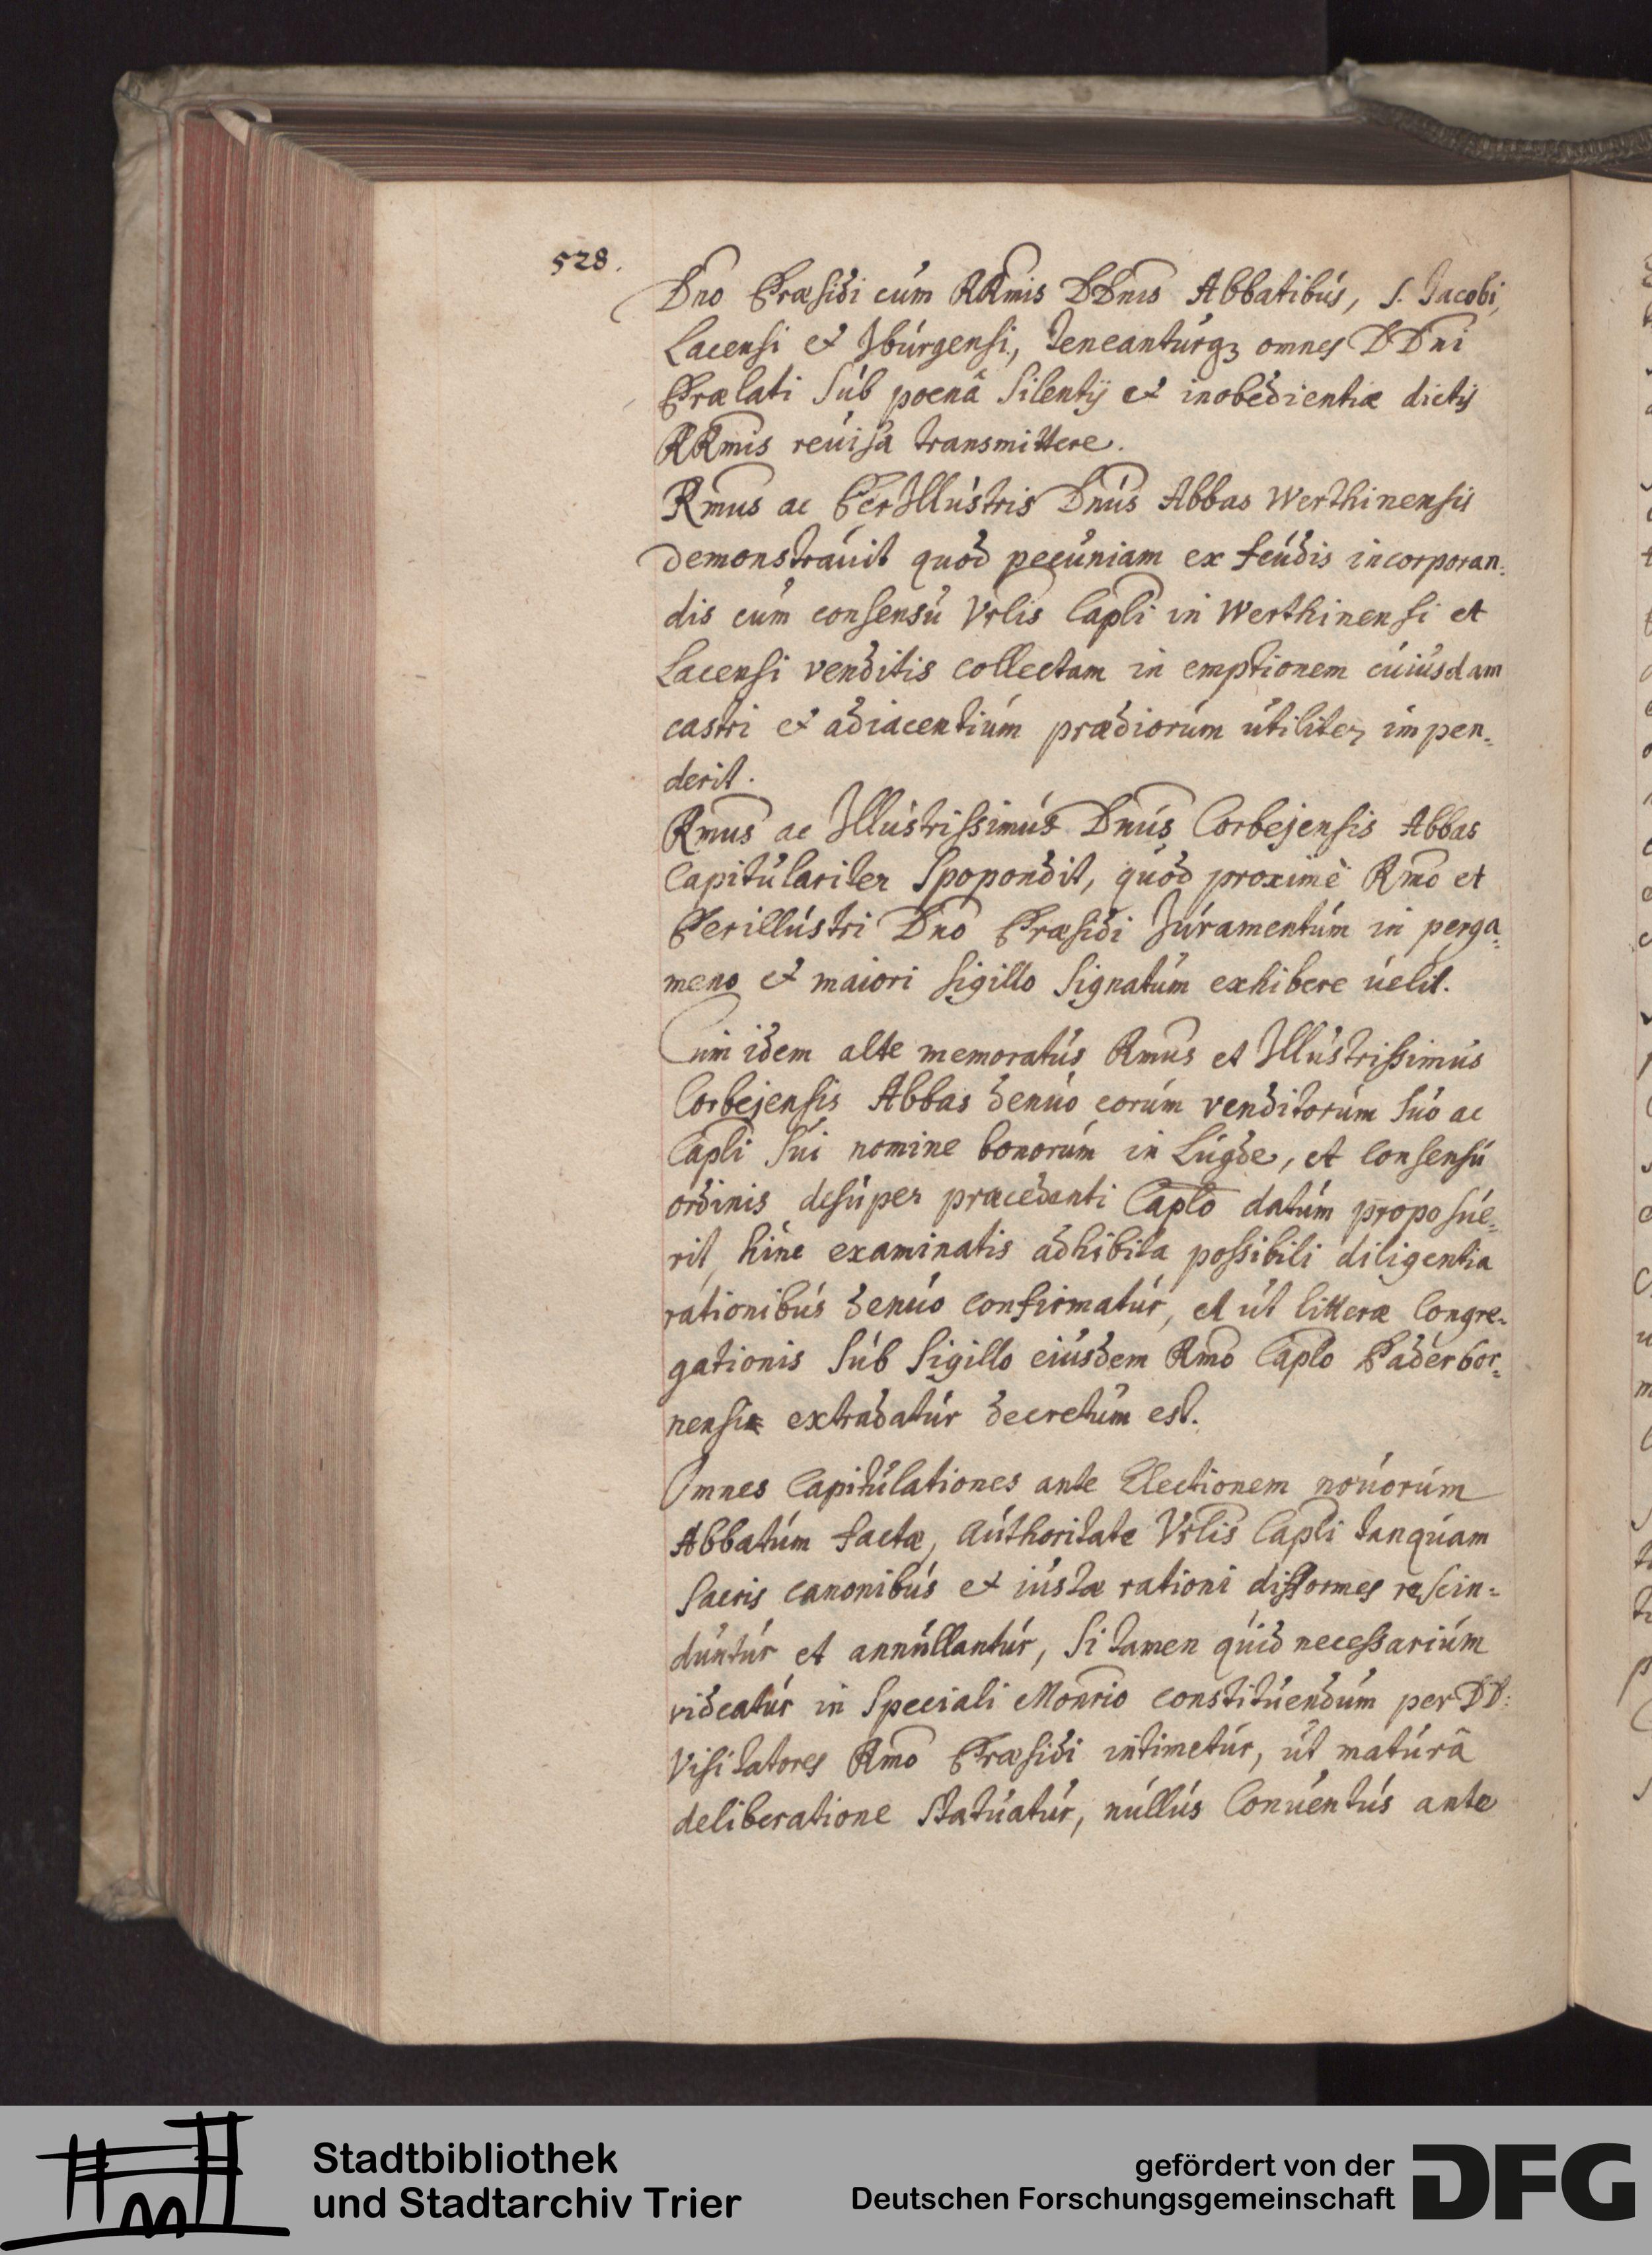 528.
Dno Præsidi cùm RRmis DDnis Abbatibus, S. Jacobi,
Lacensi et Jburgensi, teneanturq3 omnes DDni
Prælati sub poenâ silentij et inobedientiæ dictis
RRmis reuisa transmittere.
Rmus ac PerJllustris Dnus Abbas Werthinensis
demonstrauit quod pecuniam ex feudis incorporan-
dis cum consensu Vrlis Capli in Werthinensi et
Lacensi venditis collectam in emptionem cuiusdam
castri et adiacentium prædiorum utiliter impen-
derit.
Rmus ac Jllustrissimus Dnus Corbejensis Abbas
Capitulariter Spopondit, quod proximè Rmo et
Perillustri Dno Præsidi Juramentum in perga-
meno et maiori sigillo signatum exhibere uelit.
Cum idem alte memoratus Rmus et Jllustrissimus
Corbejensis Abbas denuo eorum venditorum suo ac
Capli sui nomine bonorum in Lugde, et consensu
ordinis desuper præcedenti Caplo datum proposue-
rit, hinc examinatis adhibita possibili diligentia
rationibus denuo confirmatur, et ut litteræ Congre-
gationis sub sigillo eiusdem Rmo Caplo Paderbor-
nensi extradatur decretum est.
Omnes Capitulationes ante Electionem nouorum
Abbatum factæ, Authoritate Vrlis Capli tanquam
sacris canonibus et iustæ rationi difformes rescin-
duntur et annullantur, si tamen quid necessarium
videatur in speciali Monrio constituendum per DD:
Visitatores Rmo Præsidi intimetur, ut maturâ
deliberatione statuatur, nullus Conuentus ante
Stadtbibliothek
und Stadtarchiv Trier
gefördert von der
Deutschen Forschungsgemeinschaft
DFG